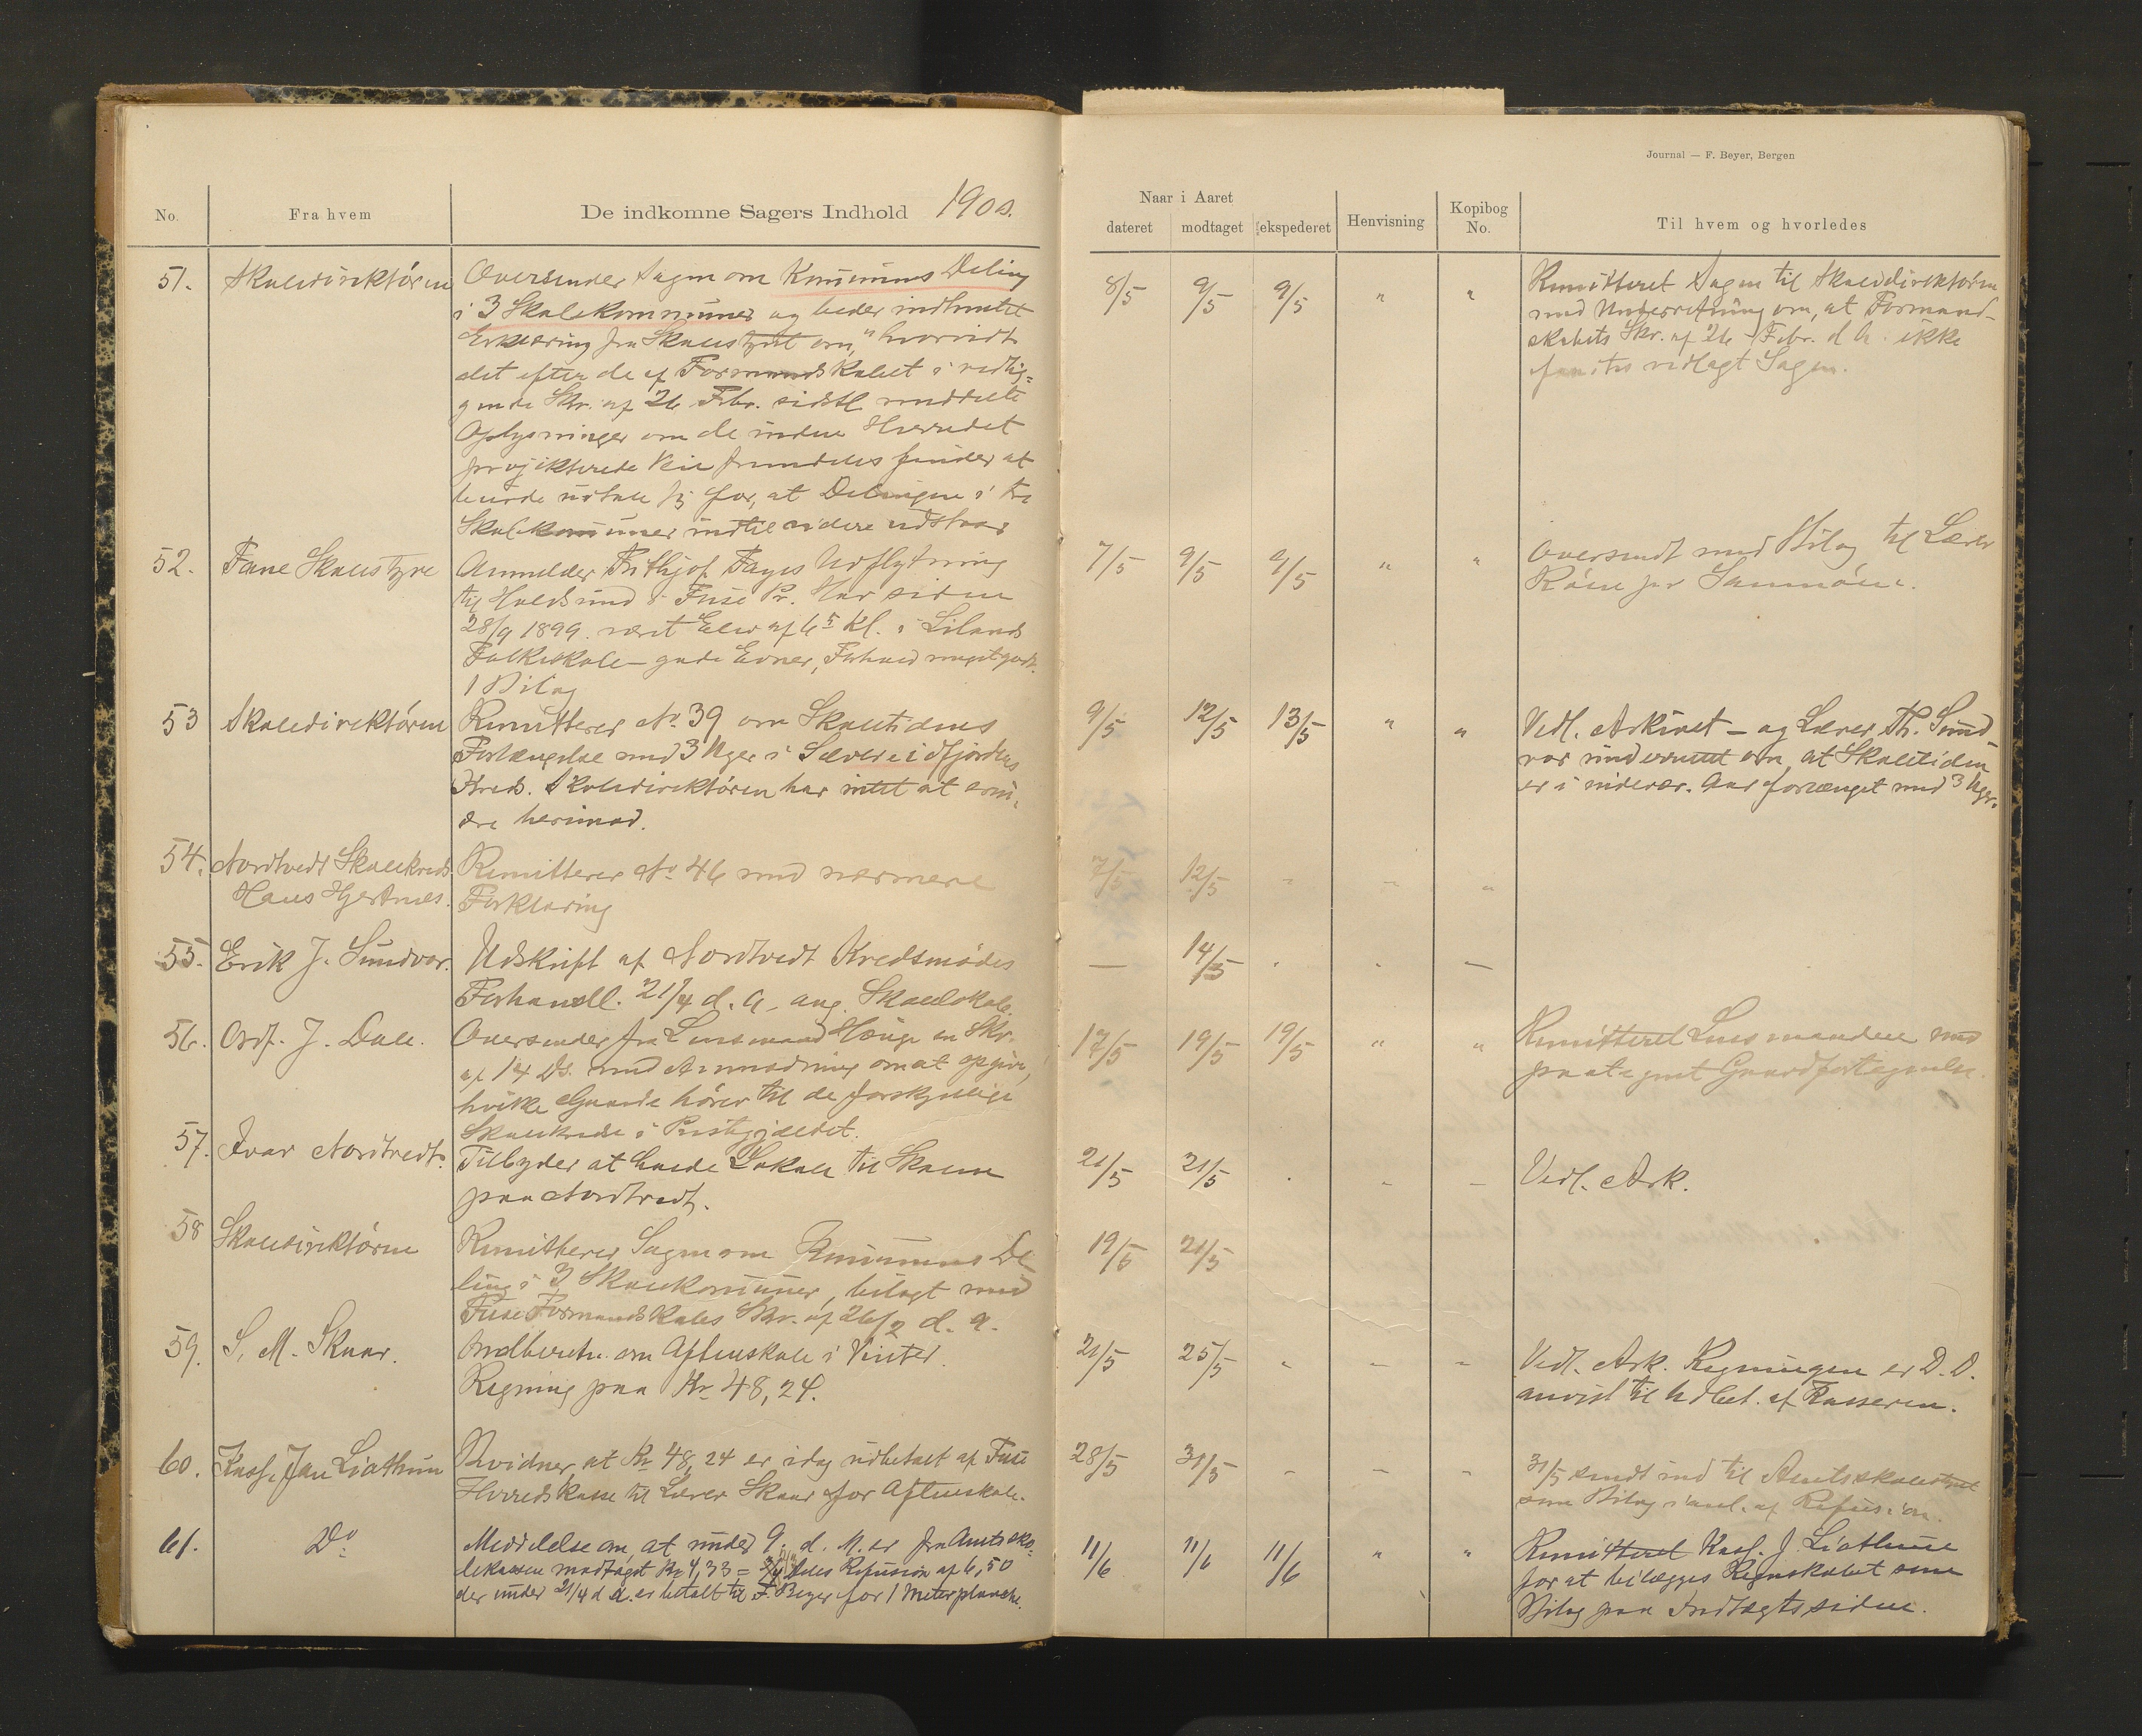 Journal — F. Beyer, Bergen
No.
Fra hvem
De indkomne Sagers Indhold 1900.
Naar i Aaret
dateret modtaget ekspederet
Henvisning
Kopibog No.
Til hvem og hvorledes
51. Skoledirektören
Oversender Sagen om Kommunens Deling
i 3 Skolekommuner og beder indhentet
Erklæring fra Skolestyret om, "hvorvidt
det efter de af Formandskabet i vedlig-
gende Skr. af 26 Febr. sidstl. meddelte
Oplysninger om de inden Herredet
projekterede Veie fremdeles finder at
burde udtale sig for, at Delingen i tre
Skolekommuner indtil videre udstaar
8/5 9/5 9/5 " "
Remitteret Sagen til Skoledirektøren
med Underretning om, at Formand-
skabets Skr. af 26 Febr. d. A. ikke
fandtes vedlagt Sagen.
52. Fane Skolestyre
Anmelder Frithjof Fages Udflytning
til Holdsund i Fuse Pr. Har siden
28/9 1899 været Elev af 6 Kl. i Lilands
Folkeskole – gode Evner, Forhold meget godt.
1 Bilag
7/5 9/5 9/5 " "
Oversendt med Bilag til Lærer
53 Skoledirektören
Remitterer No 39 om Skoletidens
Forlængelse med 3 Uger i Sævereidfjordens
Kreds. Skoledirektören har intet at erin-
dre herimod.
9/5 12/5 13/5 " "
Vedl. Arkivet – og Lærer Th. Sund-
vor underrettet om, at Skoletiden
er i indevær. Aar forlænget med 3 Uger.
54. Nordtvedt Skolekreds
Hans Hjertnes.
Remitterer No 46 med nærmere
Forklaring
7/5 12/5 - - "
55. Erik J. Sundvor.
Udskrift af Nordtvedt Kredsmødes
Forhandl. 21/4 d. A. ang. Skolelokale.
— 14/5 - - —
56. Ordf. J. Dale.
Oversender fra Lensmand Hauge en Skr.
af 14 Ds. med Anmodning om at opgive,
hvilke Gaarde hörer til de forskjellige
Skolekredse i Prestegjældet.
17/5 19/5 19/5 " "
Remitteret Lensmanden med
paategnet Gaardfortegnelse.
57. Ivar Nordtvedt.
Tilbyder at Lokale til Skolen
paa Nordtvedt.
21/5 21/5 . - -
Vedl. Ark.
58 Skoledirektören
Remitterer Sagen om Kommunens De-
ling i 3 Skolekommuner, bilagt med
Fuse Formandskabs Skr. af 26/2 d. A.
19/5 21/5
59. S. M. Skaar.
Indberetn. om Aftenskole i Vinter.
Regning paa Kr. 48,24.
21/5 25/5 - - -
Vedl. Ark. Regningen er D. D.
anvist til Udbet. af Kasseren.
60. Kass. Jan Liathun
Bevidner, at Kr. 48,24 er idag udbetalt af Fuse
Herredskasse til Lærer Skaar for Aftenskole.
28/5 31/5 - - -
31/5 sendt ind til Amtsskolestyret
som Bilag i anl. af Refusion.
61. Do
Meddelelse om, at under 9. d. M. er fra Amtssko-
lekassen modtaget Kr. 4,33 = 2/3 deles Refusion af 6,50
der under 21/4 d. A. er betalt til F. Beyer for 1 Meterplanche.
11/6 11/6 11/6 " "
Remitteret Kass. J. Liathun
for at bilægges Regnskabet som
Bilag paa Indtægtssiden.